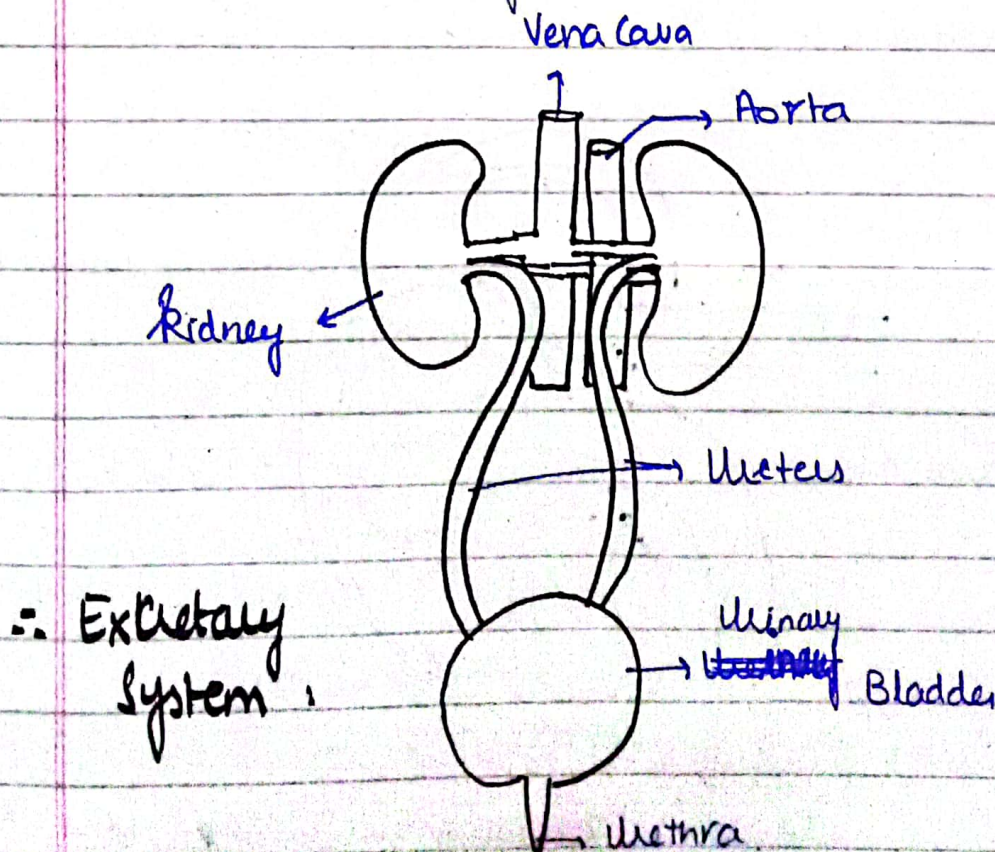 Vena Cava
Aorta
Kidney
Ureters
∴ Excretary
System :
Urinary
Bladder
Urethra